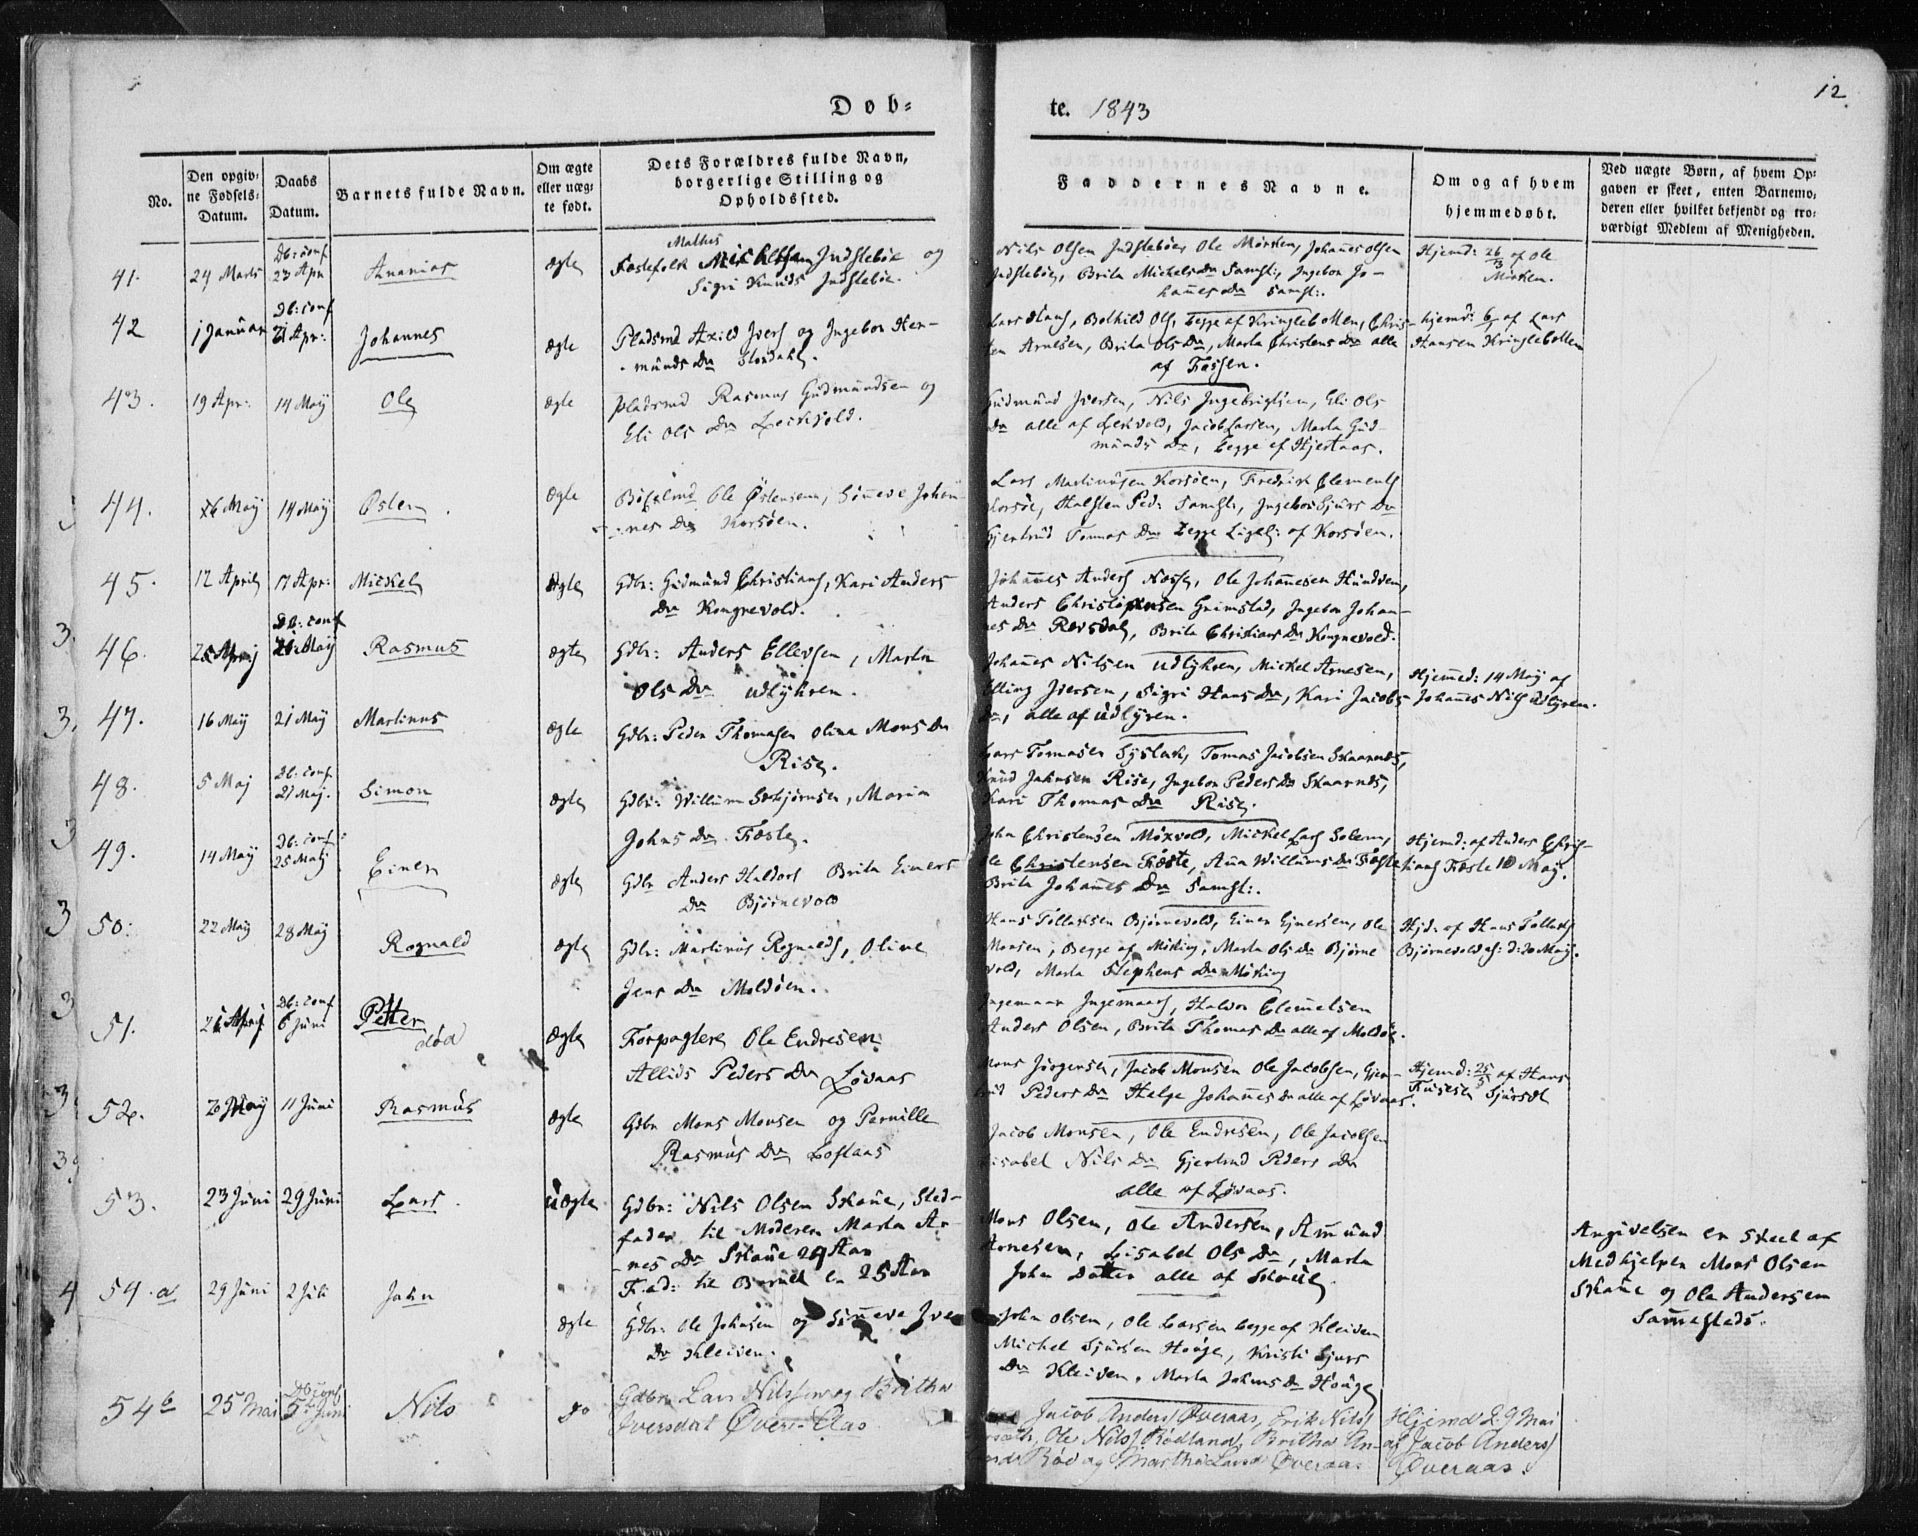 Døb-
te. 1843
12.
No.
Den opgiv-
ne Fødsels-
Datum.
Daabs
Datum.
Barnets fulde Navn.
Om ægte
eller uæg-
te født.
Dets Forældres fulde Navn,
borgerlige Stilling og
Opholdssted.
Faddernes Navne.
Om og af hvem
hjemmedøbt.
Ved uægte Børn, af hvem Op-
gaven er skeet, enten Barnemo-
deren eller hvilket bekjendt og tro-
værdigt Medlem af Menigheden.
41. 24 Marts Db: conf 23 Apr Ananias ægte
Mathis
Fæstefolk Indslebøe og
Sigri Knuds Indslebøe.
Nils Olsen Indslebøe, Ole Mørken, Johannes Olsen
Indslebøe, Brita Michels Dr Samst:, Ingebor Jo-
hannes Dr Samst:.
Hjemd: 26/3 af Ole
Mørken.
42 1 Januar Db: conf 21 Apr: Johannes ægte
Pladsmd Axild Ivers og Ingebor Her-
munds Dr Stordahl.
Lars Hans, Bothild Ols, begge af Kringlebotten, Chris-
ten Arnesen, Brita Ols Dr, Marta Christens Dr alle
af Tossen.
hjemd: 6/1 af Lars
Hansen Kringlebotten
43. 19 Apr: 14 Maÿ Ole ægte
Pladsmd Rasmus Gudmundsen og
Eli Ols Dr Leikvold.
Gudmund Iversen, Nils Ingebrigtsen, Eli Ols
Dr alle af Leikvold, Jacob Larsen, Marta Gud-
munds Dr, begge af Hjertaas.
44. 6 Maÿ 14 Maÿ Østen ægte
Ole Østensen, Sinneve Johan-
nes Dr Korsøen.
Lars Martinusen Korsøen, Fredrik Clements
Korsøe, Halsten Ped: Samst:, Ingebor Sjurs Dr
Gjertrud Tomas Dr begge Ligel: af Korsøen.
45. 12 April 17 Apr: Mickel Ægte
Gdbr: Gudmund Christians, Kari Anders
Dr Kongnevold.
Johannes Anders Nesse, Ole Johannesen Hundven,
Anders Christophersen Grimstad, Ingebor Johan-
nes Dr Revsdal, Brita Christians Dr Kongnevold.
46. 25 April Db: conf 21 Maÿ Rasmus ægte
Gdbr: Anders Ellevsen, Marta
Ols Dr Udlÿhren.
Johannes Nilsen Udlyhren, Mickel Arnesen,
Elling Iversen, Sigri Hans Dr, Kari Jacobs
Dr, alle af Udlÿren.
Hjemmed: 14 Maÿ af
Johannes Nils Udlyren.
47. 16 Maÿ 21 Maÿ Martinus ægte
Gdbr: Peder Thomasen Olina Mons Dr
Rise.
Lars Tomasen Syslak, Tomas Jacobsen Skaarnes,
Knud Jahnsen Rise, Ingebor Peders Dr Skaarnes,
Kari Thomas Dr Rise.
48. 5 Maj Db: conf 21 Maj. Simon ægte
Gdbr: Willum Sbjørnsen, Maria
Johns Dr Fæste.
John Christensen Møxvold, Mickel Lars Solem,
Ole Christensen Fæste, Anna Willums Dr Fæste
Brita Johannes Dr Samst:.
Hjemd: af Anders Chris-
tians Fæste 10 Maÿ.
49. 14 Maÿ Db: conf: 25 Maÿ Einer ægte
Gdbr Anders Haldors Brita Einers
Dr Bjørnevold
Hans Tollaksen Bjørnevold, Einer Ejnersen, Ole
Monsen, Begge af Møking, Marta Ols Dr Bjørne
vold, Marta Stephens Dr Møking
Hjd: af Hans Tollaks
Bjørnevold d: 20 Maÿ.
50: 22 Maÿ 28 Maÿ Rognald ægte
Gdbr: Martinus Rognalds, Oline
Jens Dr Moldøen.
Ingemaar Ingemaars, Haldor Clemetsen
Anders Olsen, Brita Thomas Dr alle af Moldøe.
51. 21 April Db: conf 5 Juni Petter ægte
død
Forpagter Ole Endresen
Allids Peders Dr Løvaas
Mons Jørgensen, Jacob Monsen Ole Jacobsen, Gjer-
trud Peders Dr Helge Johannes Dr alle af Løvaas.
Hjemd: 25/5 af Hans
Sjursdt
52. Maÿ 11 Juni Rasmus ægte
Gdbr Mons Monsen og Pernille
Rasmus Dr Loftaas
Jacob Monsen, Ole Endresen, Ole Jacobsen
Lisabet Nils Dr Gjertrud Peders Dr
alle af Løvaas.
53. 23 Juni 29 Juni Lars uægte
Gdbr: Nils Olsen Skaue, Sted-
fader til Moderen Marta Ar-
nes Dr Skaue 24 Aar
Fad: til Barnet er 25 Aar
Mons Olsen, Ole Andersen, Amund
Arnesen, Lisabet Ols Dr, Marta
John Datter alle af Skaue
Angivelsen er skeet af
Medhjelper Mons Olsen
Skaue og Ole Andersen
Sammesteds.
54.a 29 Juni 2 Juli John ægte
Gdbr: Ole Johnsen og Sinneve Iver
Dr Kleiven.
John Olsen, Ole Larsen begge af Kleiven
Michel Sjursen Houge, Kristi Sjurs
Dr Kleiven, Marta Johns Dr Houge
54b 25 Mai Db conf 5te Juni Nils do
Gdbr Lars Nilssen og Britha
Iversdat Øver-Aas
Jacob Anders Øveraas, Erik Nils
Ole Nils Rødland, Britha An-
Rød og Martha Lars Øveraas
Hjemd 29 Mai
af Jacob Anders
Øveraas.
3.
3.
3
3
3
3.
39
4